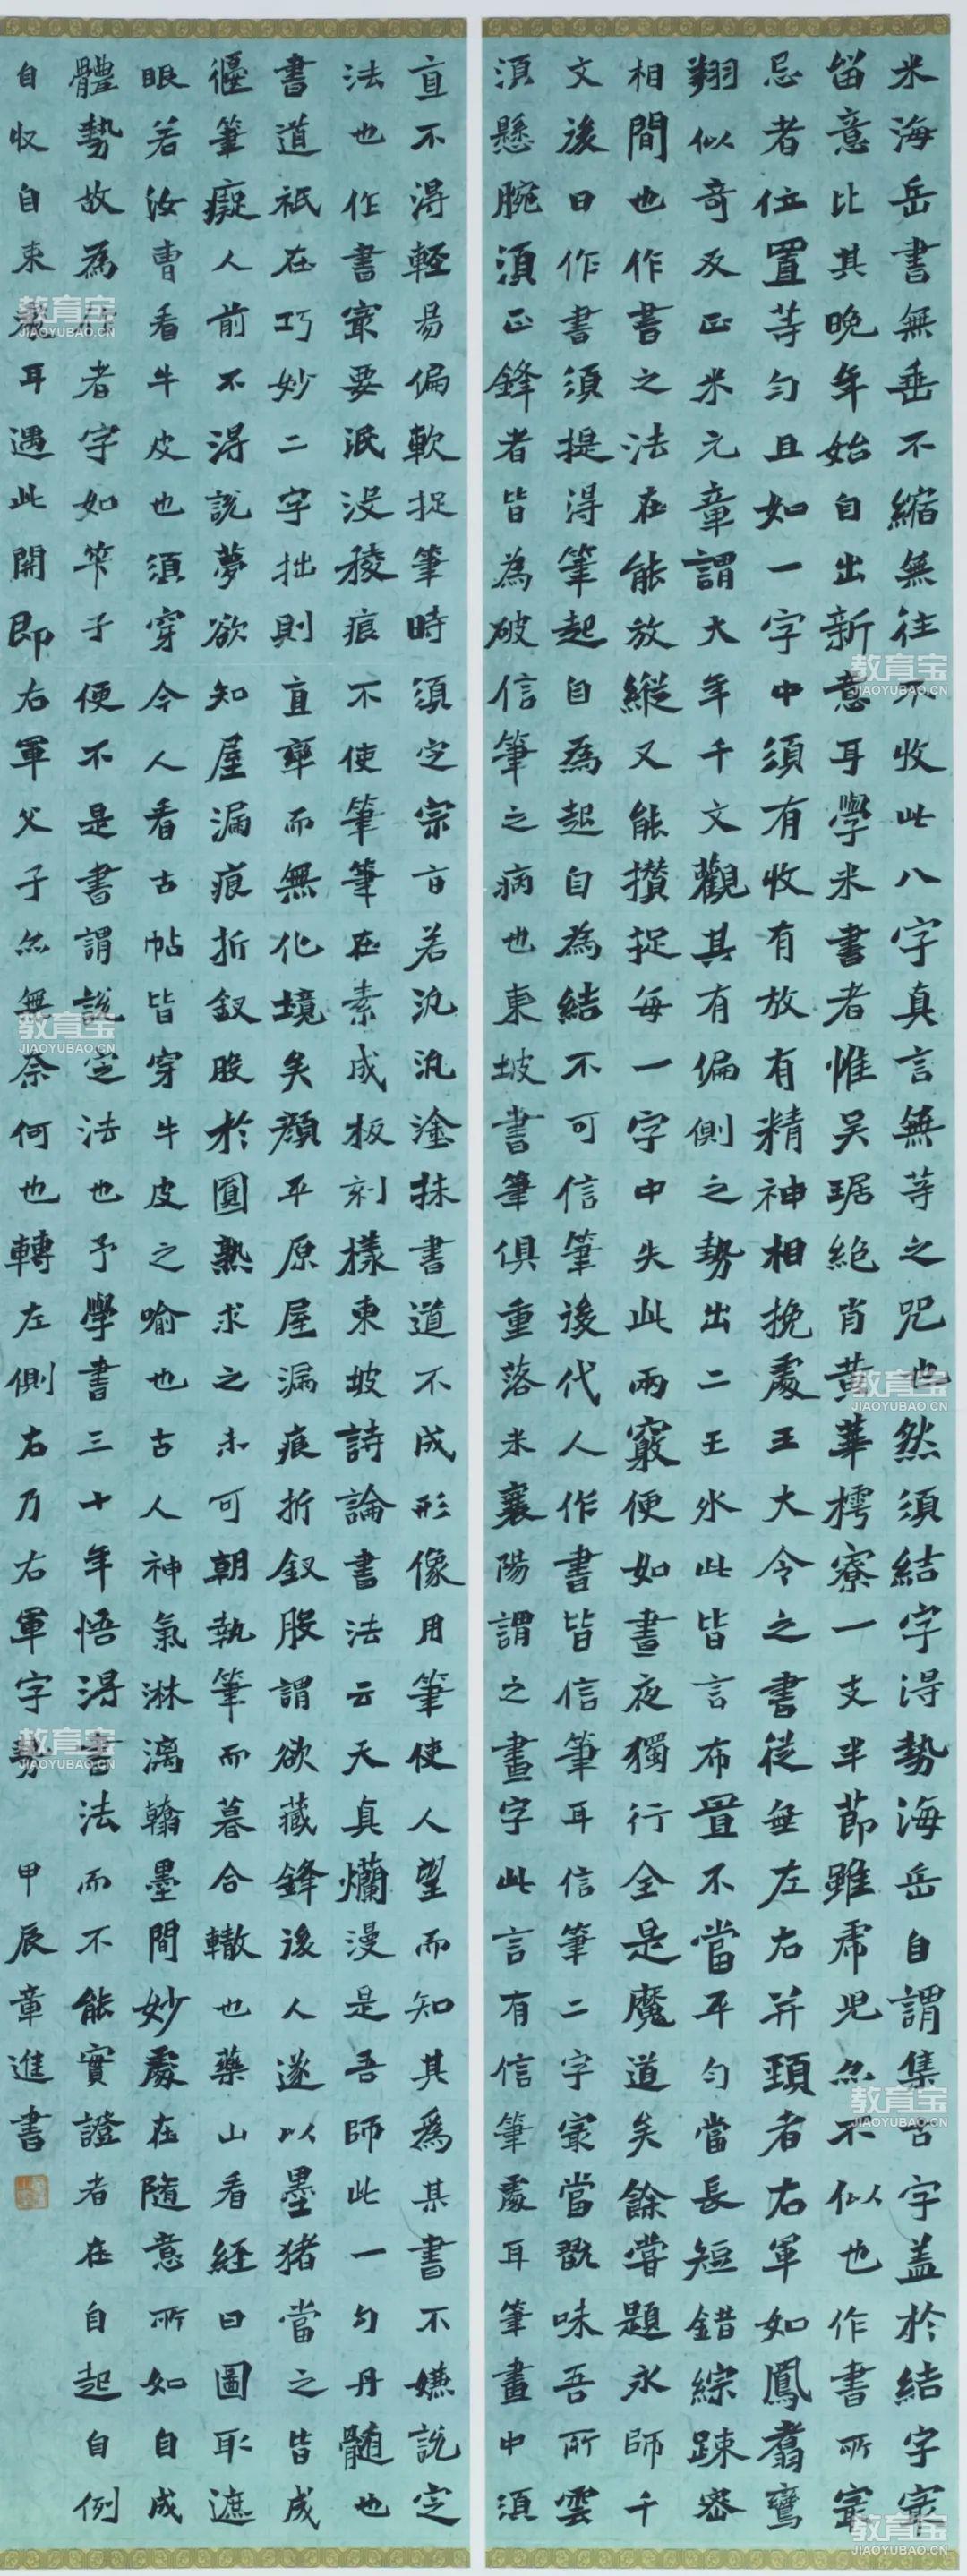 米海岳書無垂不縮無往不收此八字真言無等之咒也然須結字得勢海岳自謂集古字蓋於結字最
留意比其晚年始自出新意耳學米書者惟吳琚絕肖黃華樗寮一支半節雖虎兒亦不似也作書所最
忌者位置等勻且如一字中須有收有放有精神相挽處王大令之書從無左右并頭者右軍如鳳翥鸞
翔似奇反正米元章謂大年千文觀其有偏側之勢出二王外此皆言布置不當平勻當長短錯綜疎密
相間也作書之法在能放縱又能攢捉每一字中失此兩竅便如晝夜獨行全是魔道矣餘嘗題永師千
文後曰作書須提得筆起自為起自為結不可信筆後代人作書皆信筆耳信筆二字最當翫味吾所雲
須懸腕須正鋒者皆為破信筆之病也東坡書筆俱重落米襄陽謂之畫字此言有信筆處耳筆畫中須
直不得輕易偏軟捉筆時須定宗旨若泛泛塗抹書道不成形像用筆使人望而知其為某書不嫌說定
法也作書最要泯沒稜痕不使筆筆在素成板刻樣東坡詩論書法云天真爛漫是吾師此一句丹髓也
書道祇在巧妙二字拙則直率而無化境矣顏平原屋漏痕折釵股謂欲藏鋒後人遂以墨豬當之皆成
偃筆癡人前不得說夢欲知屋漏痕折釵股於圓熟求之未可朝執筆而暮合轍也藥山看經曰圖取遮
眼若汝曹看牛皮也須穿今人看古帖皆穿牛皮之喻也古人神氣淋漓翰墨間妙處在隨意所如自成
體勢故為作者字如筭子便不是書謂說定法也予學書三十年悟得書法而不能實證者在自起自例
自收自束處耳遇此開即右軍父子亦無奈何也轉左側右乃右軍字勢 甲辰章進書
教育宝
JIAOYUBAO.CN